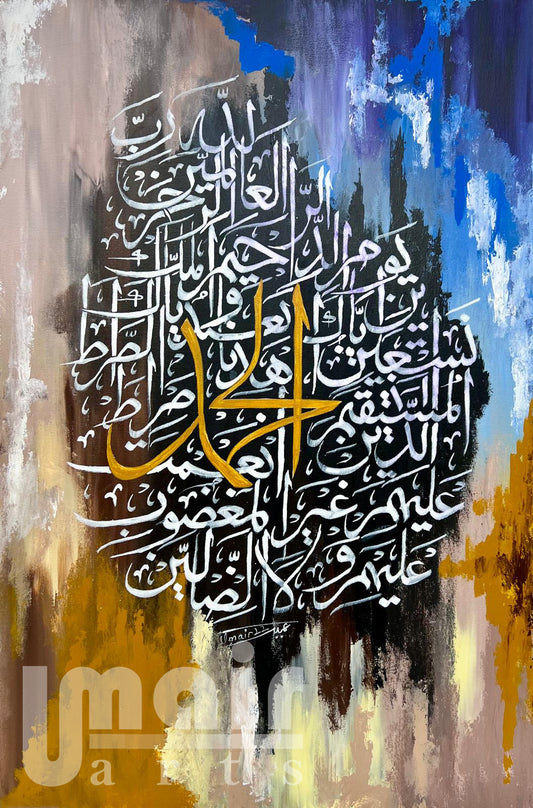 لله رب
العالمين
الرحمن
الرحيم ملك
يوم الدين
إياك نعبد وإياك
نستعين
اهدنا الصراط
المستقيم صراط
الذين أنعمت
عليهم غير المغضوب
عليهم ولا الضالين
الحمد
umair arts